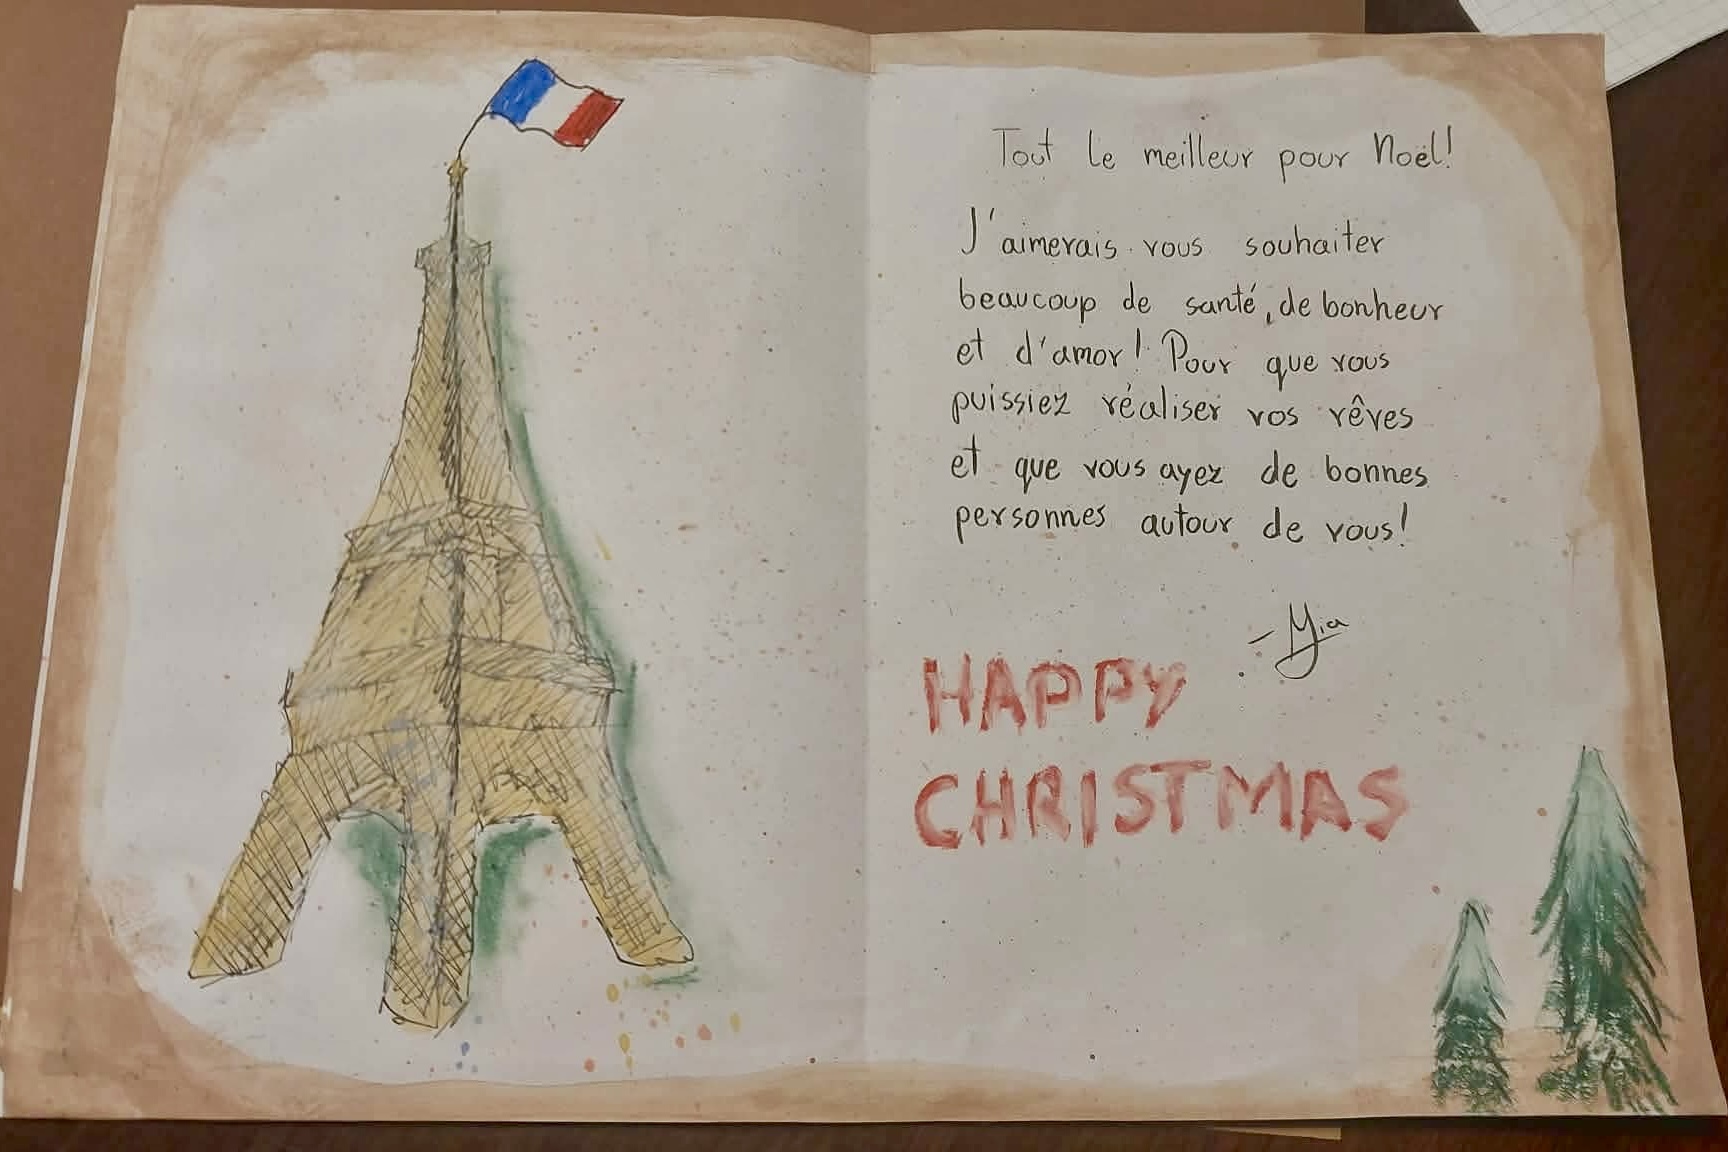 Tout le meilleur pour Noël!
J'aimerais vous souhaiter
beaucoup de santé, de bonheur
et d'amor! Pour que vous
puissiez réaliser vos rêves
et que vous ayez de bonnes
personnes autour de vous!
- Mia
HAPPY
CHRISTMAS